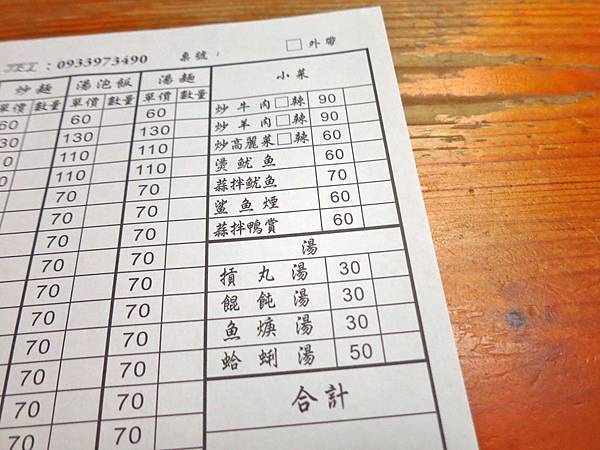 TEL：0933973490 桌號： □外帶
炒麵 湯泡飯 湯麵 小菜
單價 數量 單價 數量 單價 數量
60 60 60 炒牛肉□辣 90
30 130 130 炒羊肉□辣 90
10 110 110 炒高麗菜□辣 60
0 110 110 燙魷魚 60
70 70 蒜拌魷魚 70
70 70 鯊魚煙 60
70 70 蒜拌鴨賞 60
70 70 湯
70 70 摃丸湯 30
70 70 餛飩湯 30
70 70 魚焿湯 30
70 70 蛤蜊湯 50
70 70
70 70 合計
70 70